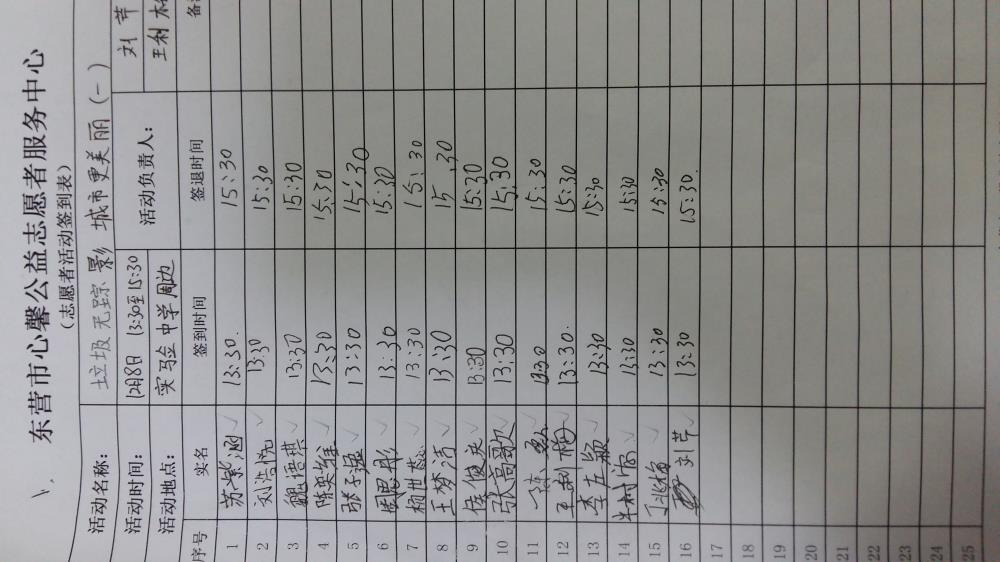 东营市心馨公益志愿者服务中心
（志愿者活动签到表）
活动名称： 垃圾无踪影 城市更美丽（一）
活动时间： 12月8日 13:30至15:30 活动负责人： 刘芹
活动地点： 实验中学周边 王利
序号 实名 签到时间 签退时间 备
1 苏紫涵 13:30 15:30
2 刘浩悦 13:30 15:30
3 魏梧祺 13:30 15:30
4 陈奕维 13:30 15:30
5 张子涵 13:30 15:30
6 周思彤 13:30 15:30
7 杨世 13:30 15:30
8 王梦洁 13:30 15:30
9 侯俊 13:30 15:30
10 张高歌 13:30 15:30
11 13:30 15:30
12 王利梅 13:30 15:30
13 李 13:30 15:30
14 13:30 15:30
15 丁 13:30 15:30
16 刘芹 13:30 15:30
17
18
19
20
21
22
23
24
25